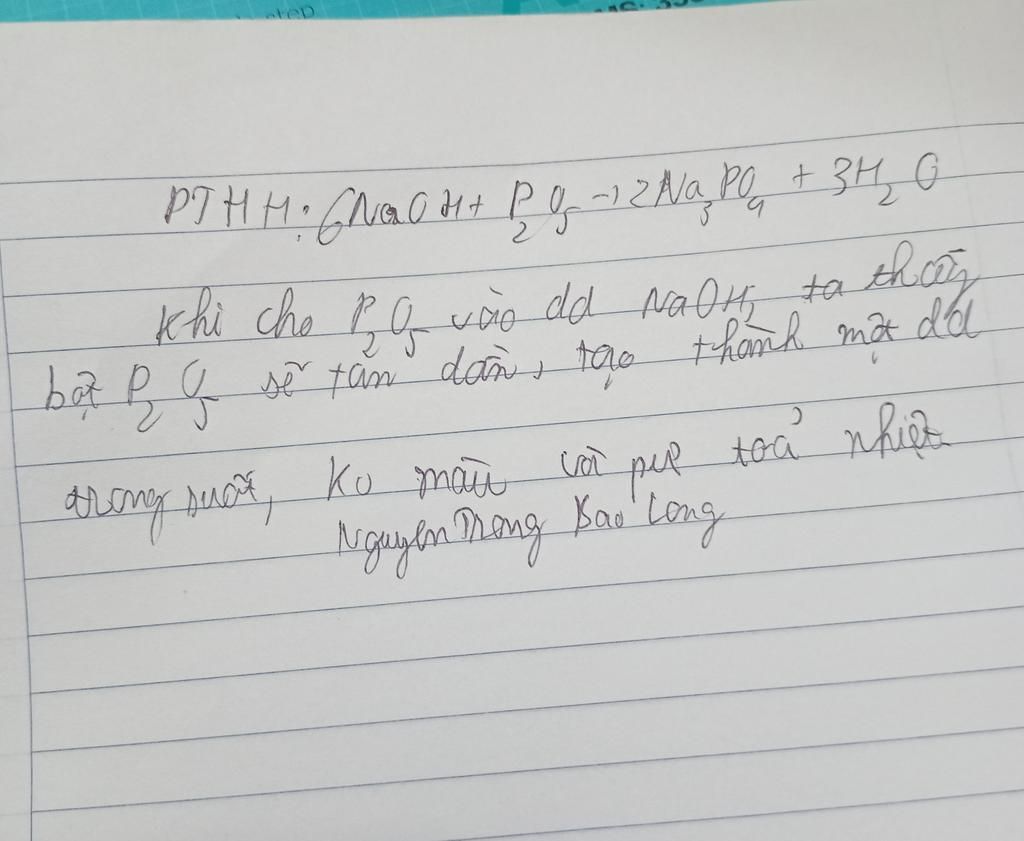 step
PTHH: 6NaOH + P2O5 → 2Na3PO4 + 3H2O
Khi cho P2O5 vào dd NaOH, ta thấy
bột P2O5 sẽ tan dần, tạo thành một dd
trong suốt, ko màu và pư toả nhiệt
Nguyen Trong Bao Long